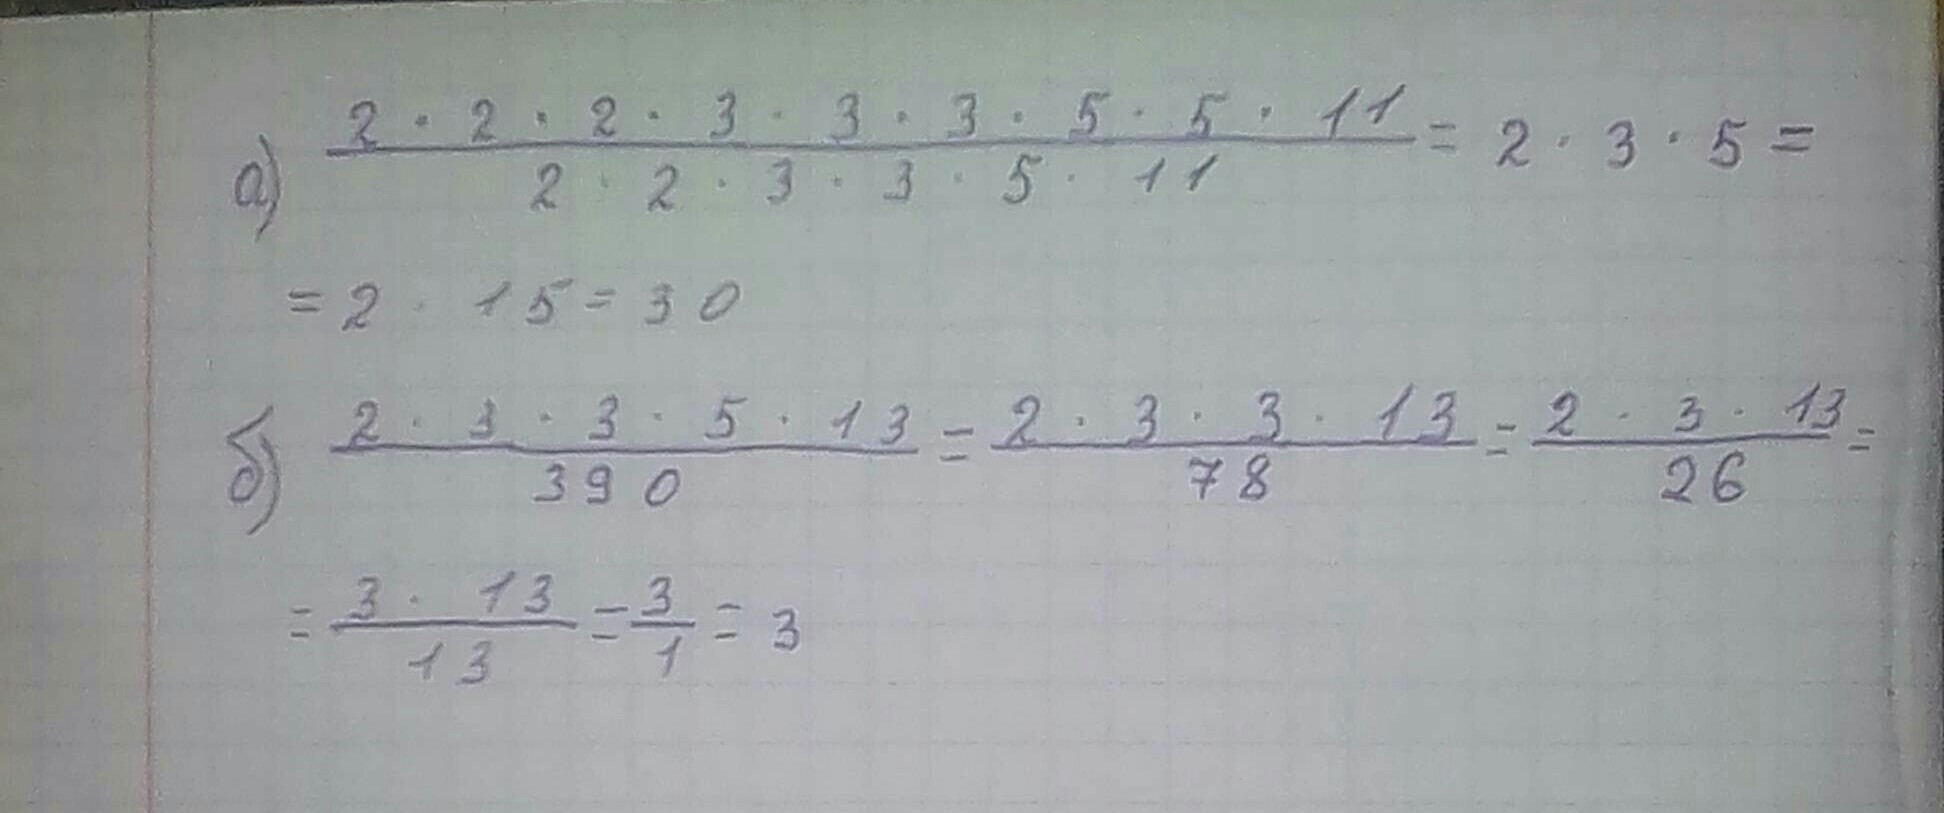 а) (2 · 2 · 2 · 3 · 3 · 3 · 5 · 5 · 11) / (2 · 2 · 3 · 3 · 5 · 11) = 2 · 3 · 5 =
= 2 · 15 = 30
б) (2 · 3 · 3 · 5 · 13) / 390 = (2 · 3 · 3 · 13) / 78 = (2 · 3 · 13) / 26 =
= (3 · 13) / 13 = 3 / 1 = 3